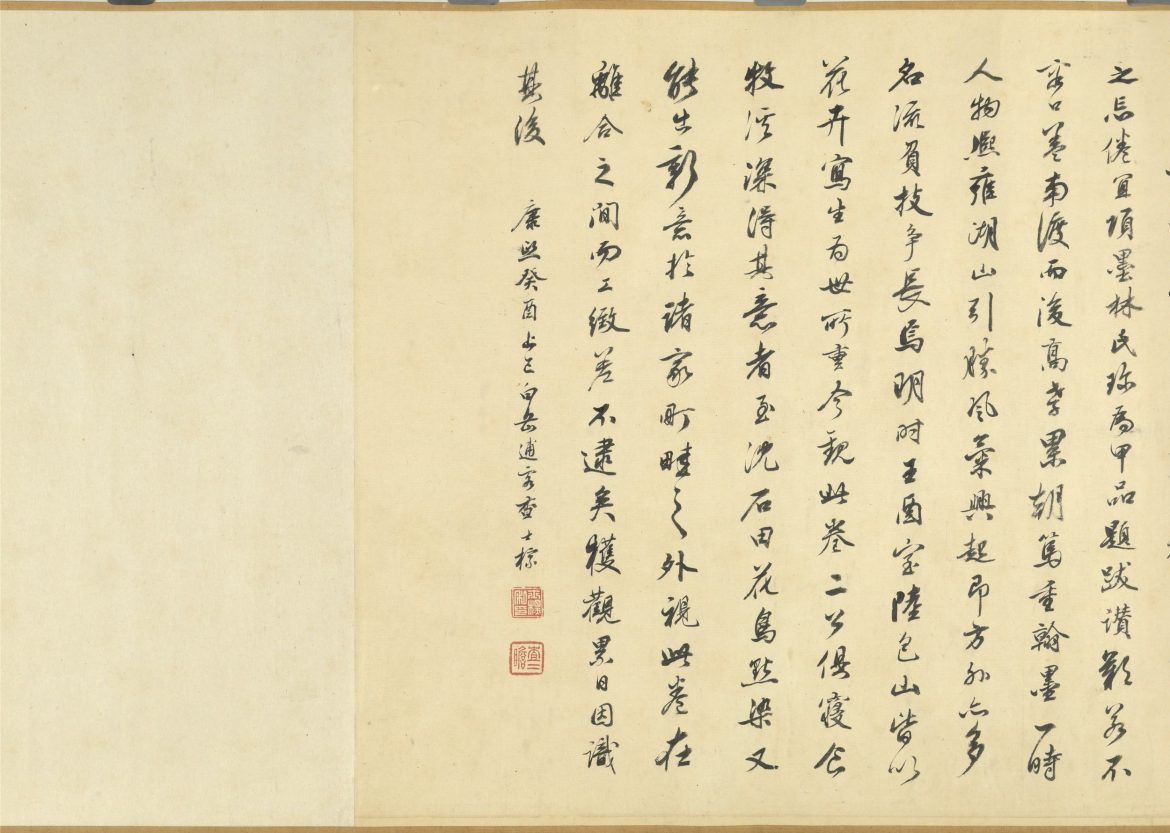 之忘倦宜項墨林氏珍為甲品題跋讚歎若不
容口蓋南渡而後高孝累朝篤重翰墨一時
人物熙雍湖山引勝風氣興起即方外亦多
名流負技爭長焉明時王酉室陸包山皆以
花卉寫生為世所重今觀此卷二公俱寢食
牧溪深得其意者至沈石田花鳥點染又
能出新意於諸家町畦之外視此卷在
離合之間而工緻差不逮矣獲觀累日因識
其後
康熙癸酉上巳白岳逋客查士標